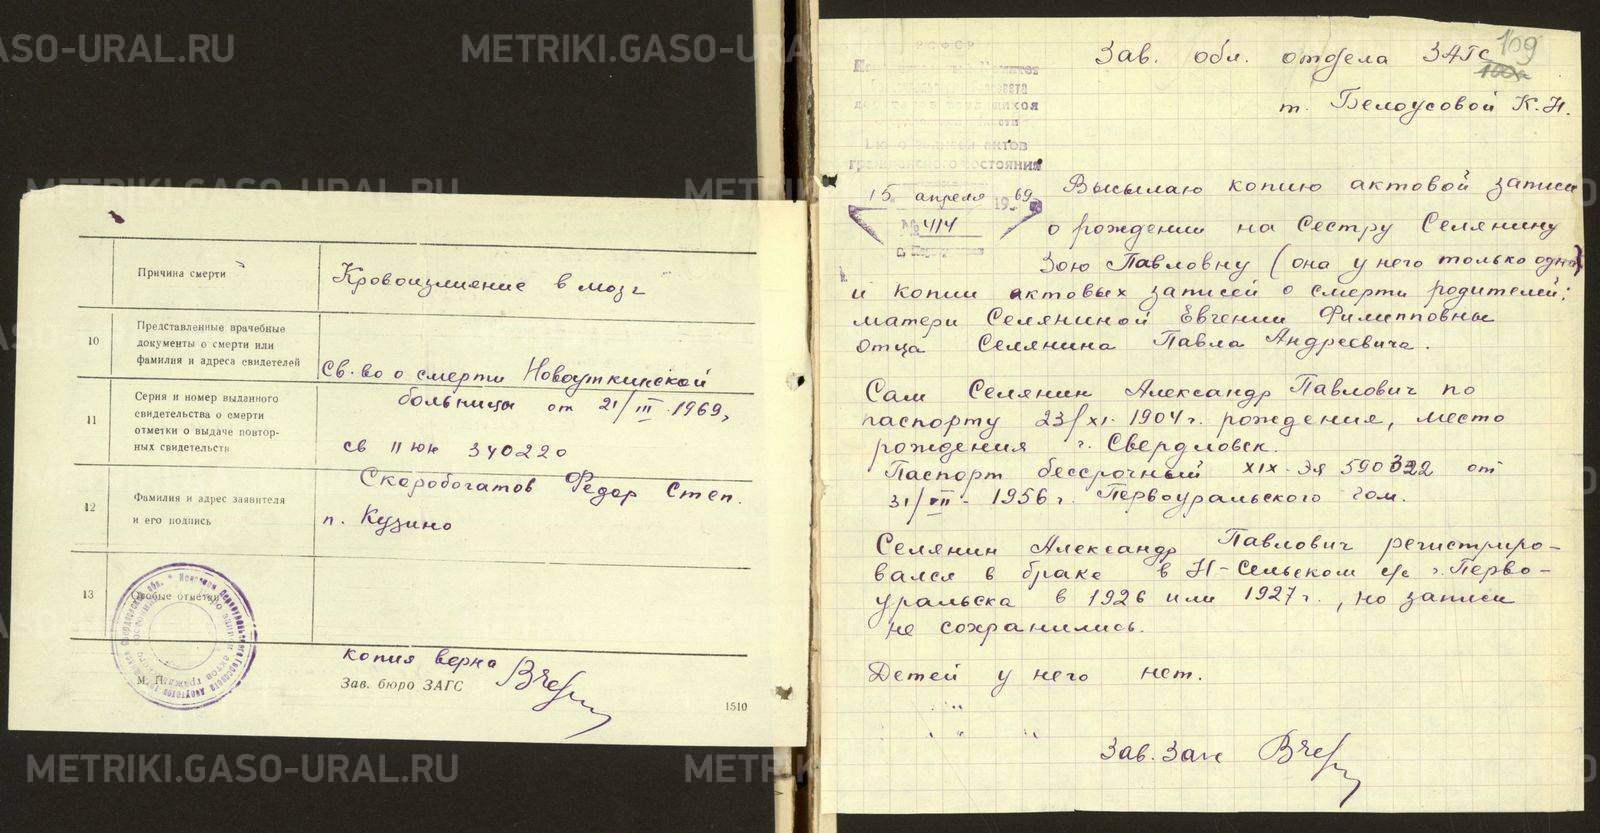 Причина смерти
Кровоизлияние в мозг
10
Представленные врачебные
документы о смерти или
фамилия и адреса свидетелей
Св-во о смерти Новоуткинской
больницы от 21/III-1969,
11
Серия и номер выданного
свидетельства о смерти
отметки о выдаче повтор-
ных свидетельств
св II юн 340220
12
Фамилия и адрес заявителя
и его подпись
Скоробогатов Федор Степ.
п. Кузино
13
Особые отметки
М. П.
копия верна
Зав. бюро ЗАГС
1510
109
Зав. обл. отдела ЗАГС
т. Белоусовой К.Н.
РСФСР
актов
гражданского состояния
15 апреля 1969
№ 414
Высылаю копию актовой записи
о рождении на сестру Селянину
Зою Павловну (она у него только одна)
и копии актовых записей о смерти родителей:
матери Селяниной Евгении Филипповны
отца Селянина Павла Андреевича.
Сам Селянин Александр Павлович по
паспорту 23/XI-1904 г. рождения, место
рождения г. Свердловск.
Паспорт бессрочный XIX-ЭЯ 590322 от
31/VII-1956 г. Первоуральского гом.
Селянин Александр Павлович регистриро-
вался в браке в Н-Сельском с/с г. Перво-
уральска в 1926 или 1927 г., но записи
не сохранились.
Детей у него нет.
Зав. Загс
METRIKI.GASO-URAL.RU